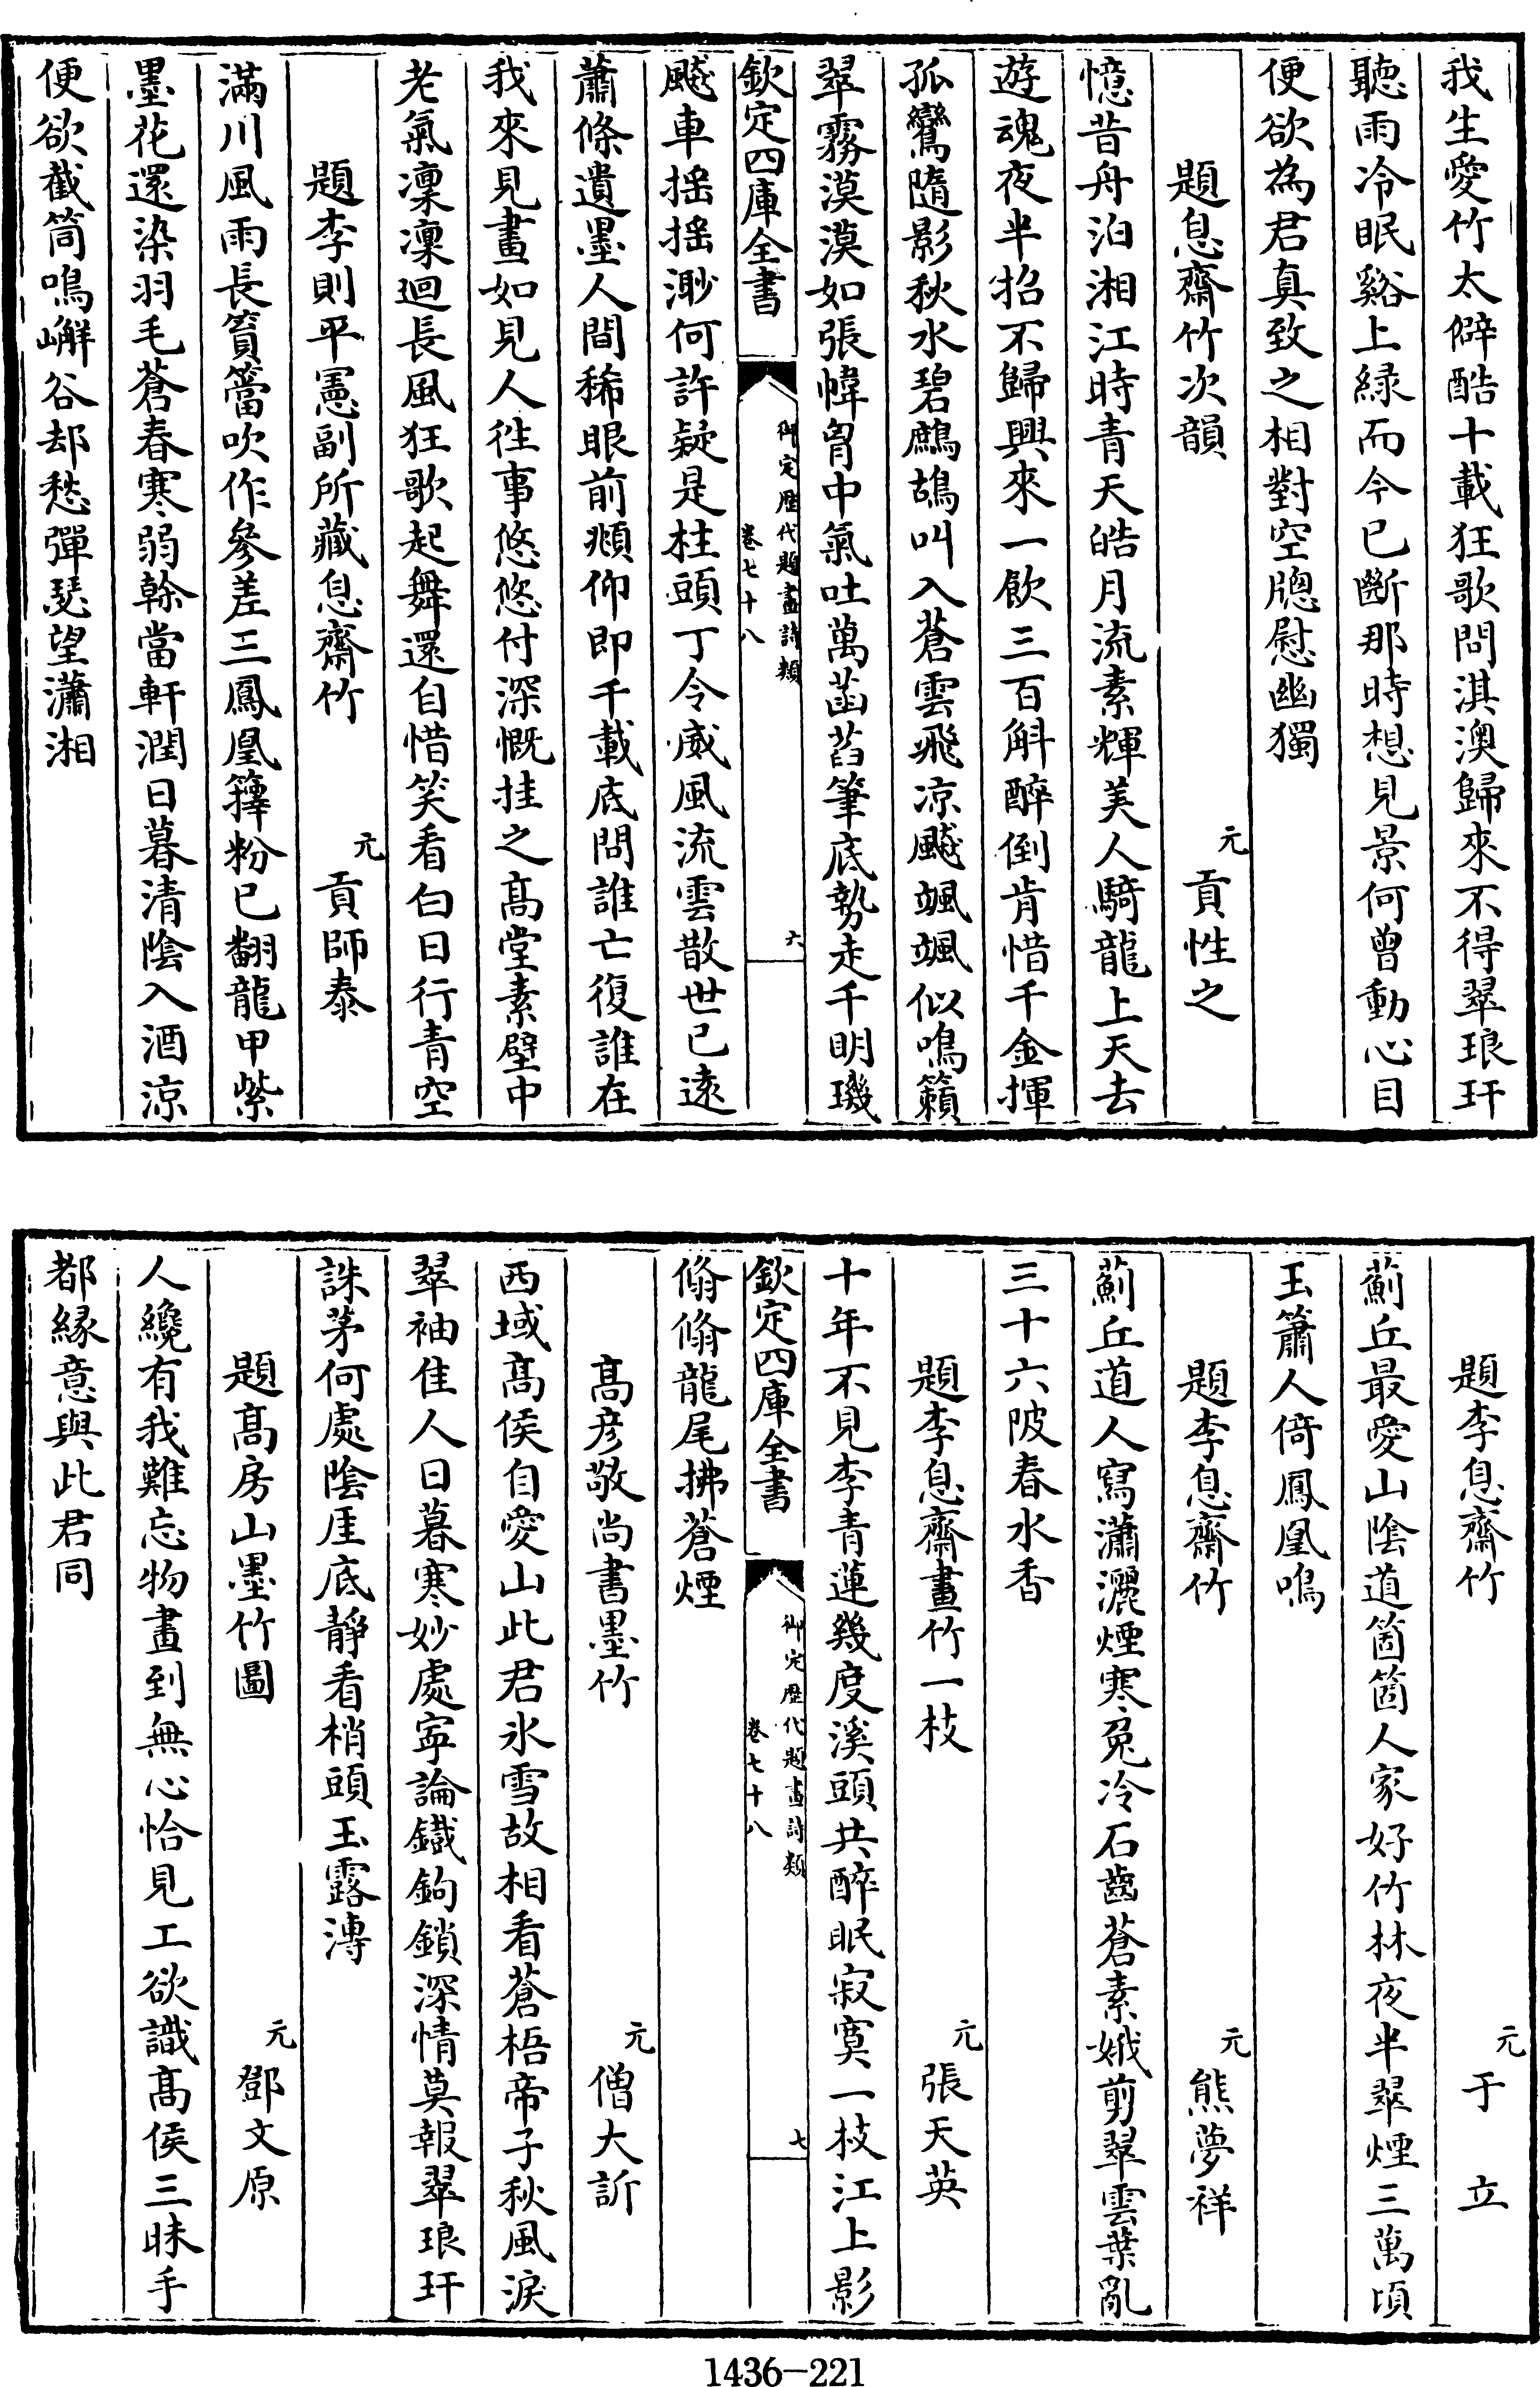 我生愛竹太僻酷十載狂歌問淇澳歸來不得翠琅玕
聽雨冷眠谿上緑而今已斷那時想見景何曾動心目
便欲為君真致之相對空牕慰幽獨
題息齋竹次韻 元 貢性之
憶昔舟泊湘江時青天皓月流素輝美人騎龍上天去
遊魂夜半招不歸興來一飲三百斛醉倒肯惜千金揮
孤鸞隨影秋水碧鷓鴣叫入蒼雲飛凉飈颯颯似鳴籟
翠霧漠漠如張幃胷中氣吐萬菡萏筆底勢走千明璣
欽定四庫全書 御定歴代題畫詩類 卷七十八 六
飈車揺揺渺何許疑是柱頭丁令威風流雲散世已逺
蕭條遺墨人間稀眼前頫仰即千載底問誰亡復誰在
我來見畫如見人徃事悠悠付深慨挂之髙堂素壁中
老氣凜凜迴長風狂歌起舞還自惜笑看白日行青空
題李則平憲副所藏息齋竹 元 貢師泰
滿川風雨長篔簹吹作參差三鳳凰籜粉已翻龍甲紫
墨花還染羽毛蒼春寒弱榦當軒潤日暮清陰入酒涼
便欲截筒鳴嶰谷却愁彈瑟望瀟湘
題李息齋竹 元 于立
薊丘最愛山陰道箇箇人家好竹林夜半翠煙三萬頃
玉簫人倚鳳凰鳴
題李息齋竹 元 熊夢祥
薊丘道人寫瀟灑煙寒兎冷石齒蒼素娥剪翠雲葉亂
三十六陂春水香
題李息齋畫竹一枝 元 張天英
十年不見李青蓮幾度溪頭共醉眠寂寞一枝江上影
翛翛龍尾拂蒼煙
欽定四庫全書 御定歴代題畫詩類 卷七十八 七
髙彦敬尚書墨竹 元 僧大訢
西域髙侯自愛山此君氷雪故相看蒼梧帝子秋風淚
翠袖佳人日暮寒妙處寕論鐵鉤鎖深情莫報翠琅玕
誅茅何處陰厓底靜看梢頭玉露漙
題髙房山墨竹圖 元 鄧文原
人纔有我難忘物畫到無心恰見工欲識髙侯三昧手
都縁意與此君同
1436-221